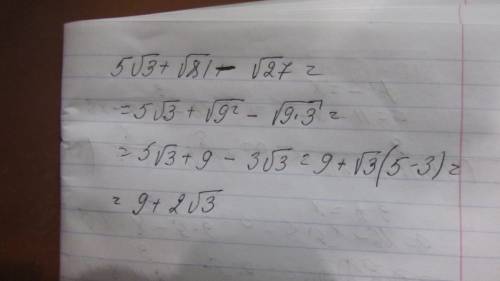 5√3 + √81 - √27 =
= 5√3 + √9² - √9·3 =
= 5√3 + 9 - 3√3 = 9 + √3(5-3) =
= 9 + 2√3